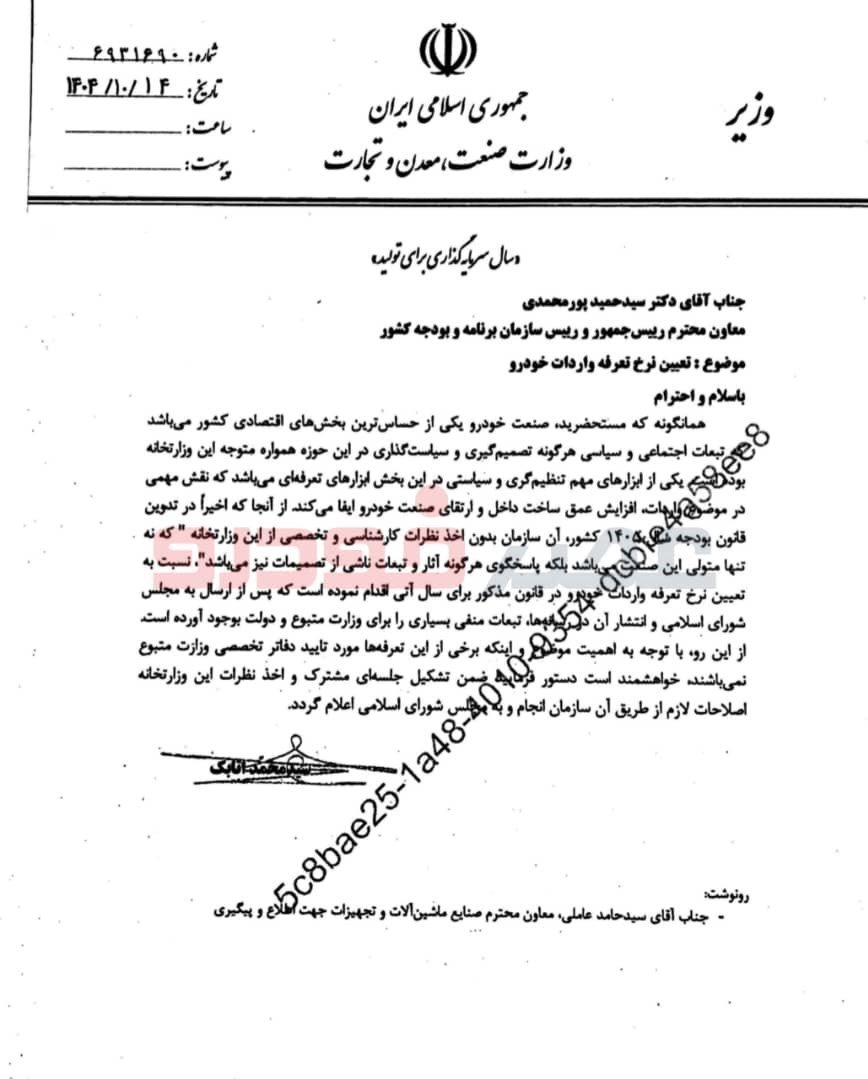 شماره: ۶۹۳۱۶۹۰
تاریخ: ۱۴۰۴/۱۰/۱۴
ساعت:
پیوست:
جمهوری اسلامی ایران
وزارت صنعت، معدن و تجارت
وزیر
«سال سرمایه‌گذاری برای تولید»
جناب آقای دکتر سیدحمید پورمحمدی
معاون محترم رییس‌جمهور و رییس سازمان برنامه و بودجه کشور
موضوع : تعیین نرخ تعرفه واردات خودرو
باسلام و احترام
همانگونه که مستحضرید، صنعت خودرو یکی از حساس‌ترین بخش‌های اقتصادی کشور می‌باشد
که تبعات اجتماعی و سیاسی هرگونه تصمیم‌گیری و سیاست‌گذاری در این حوزه همواره متوجه این وزارتخانه
بوده است. یکی از ابزارهای مهم تنظیم‌گری و سیاستی در این بخش ابزارهای تعرفه‌ای می‌باشد که نقش مهمی
در موضوع واردات، افزایش عمق ساخت داخل و ارتقای صنعت خودرو ایفا می‌کند. از آنجا که اخیراً در تدوین
قانون بودجه سال ۱۴۰۵ کشور، آن سازمان بدون اخذ نظرات کارشناسی و تخصصی از این وزارتخانه " که نه
تنها متولی این صنعت می‌باشد بلکه پاسخگوی هرگونه آثار و تبعات ناشی از تصمیمات نیز می‌باشد"، نسبت به
تعیین نرخ تعرفه واردات خودرو در قانون مذکور برای سال آتی اقدام نموده است که پس از ارسال به مجلس
شورای اسلامی و انتشار آن در رسانه‌ها، تبعات منفی بسیاری را برای وزارت متبوع و دولت بوجود آورده است.
از این رو، با توجه به اهمیت موضوع و اینکه برخی از این تعرفه‌ها مورد تایید دفاتر تخصصی وزارت متبوع
نمی‌باشند، خواهشمند است دستور فرمایید ضمن تشکیل جلسه‌ای مشترک و اخذ نظرات این وزارتخانه
اصلاحات لازم از طریق آن سازمان انجام و به مجلس شورای اسلامی اعلام گردد.
سیدمحمد اتابک
رونوشت:
- جناب آقای سیدحامد عاملی، معاون محترم صنایع ماشین‌آلات و تجهیزات جهت اطلاع و پیگیری
عصر خودرو